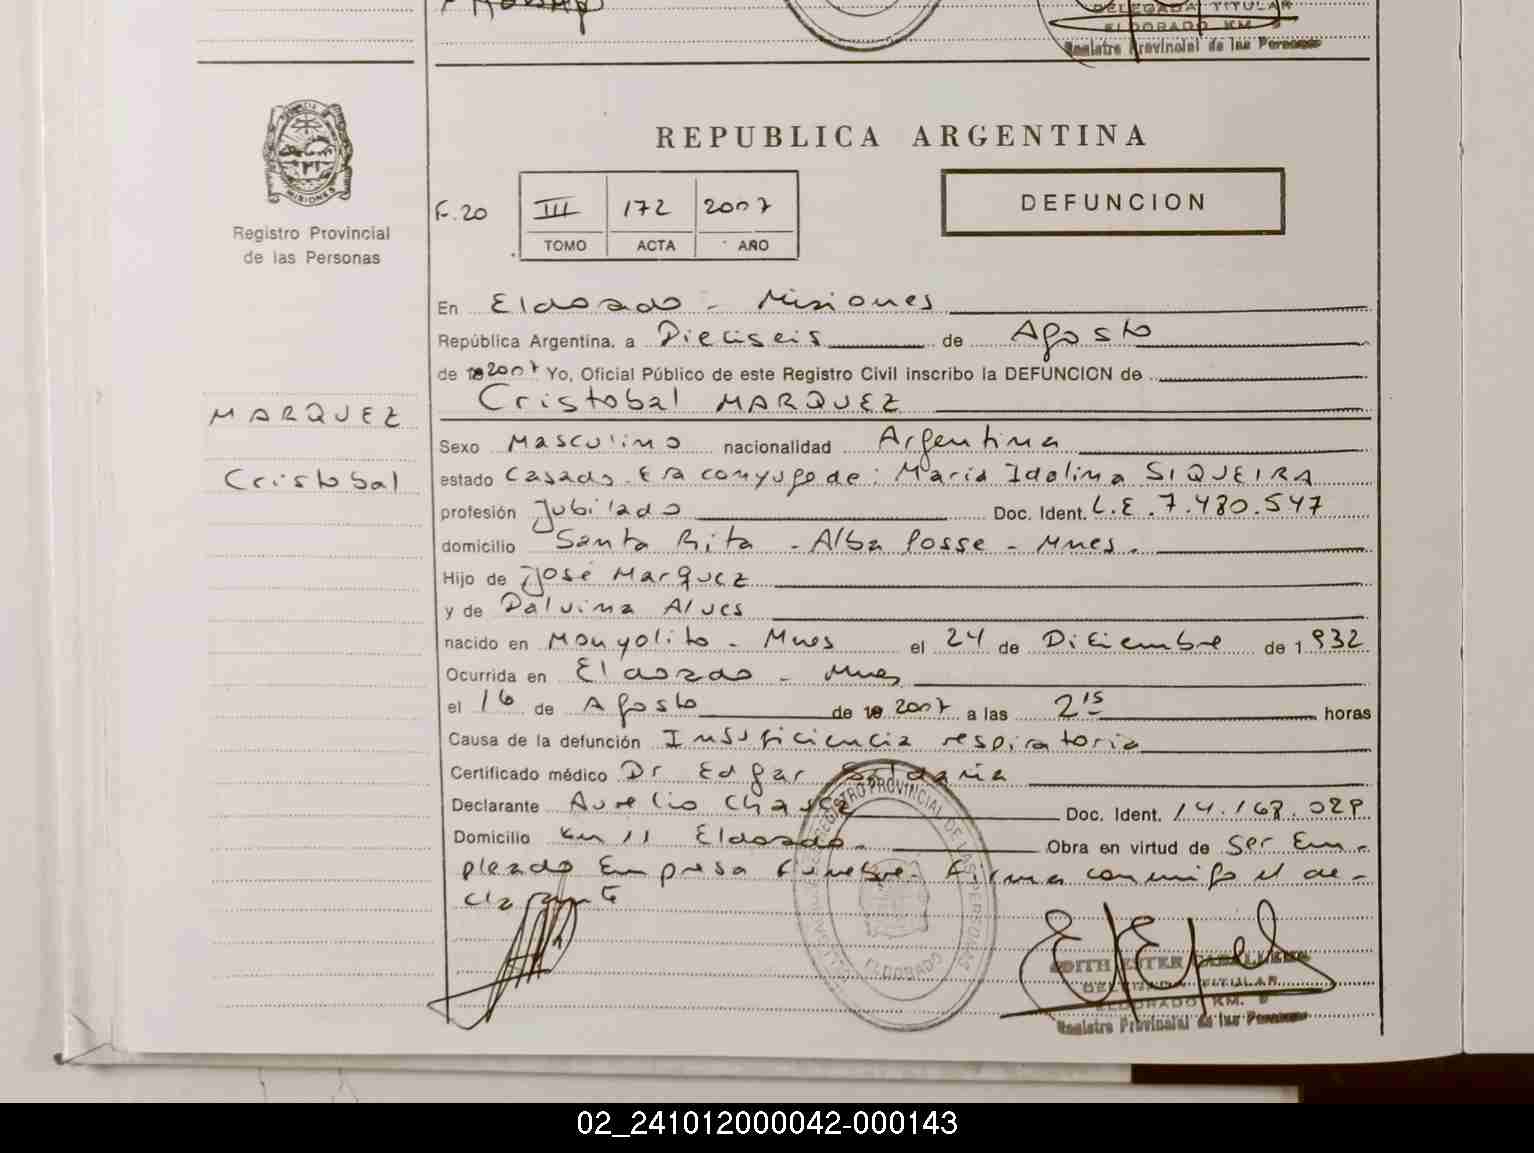 DELEGADA TITULAR
ELDORADO KM.
Registro Provincial de las Personas
PROVINCIA
MISIONES
Registro Provincial
de las Personas
REPUBLICA ARGENTINA
F. 20
III 172 2007
TOMO ACTA AÑO
DEFUNCION
En Eldorado - Misiones
República Argentina, a Dieciseis de Agosto
de 2007 Yo, Oficial Público de este Registro Civil inscribo la DEFUNCION de
Cristobal MARQUEZ
MARQUEZ
Cristobal
Sexo Masculino nacionalidad Argentina
estado Casado. Era conyuge de: Maria Idolina SIQUEIRA
profesión Jubilado Doc. Ident. L.E. 7.480.547
domicilio Santa Rita - Alba Posse - Mnes.
Hijo de José Marquez
y de Dalvina Alves
nacido en Monyolito - Mnes el 24 de Diciembre de 1932
Ocurrida en Eldorado - Mnes
el 16 de Agosto de 2007 a las 2 15 horas
Causa de la defunción Insuficiencia respiratoria
Certificado médico Dr Edgar Saldaña
Declarante Aurelio Doc. Ident. 14.168.029
Domicilio Km 11 Eldorado. Obra en virtud de Ser Em-
pleado Empresa Funebre. Firma conmigo el de-
clarante
REGISTRO PROVINCIAL DE LAS PERSONAS
ELDORADO
EDITH ESTER
DELEGADA TITULAR
ELDORADO KM. 9
Registro Provincial de las Personas
02_241012000042-000143